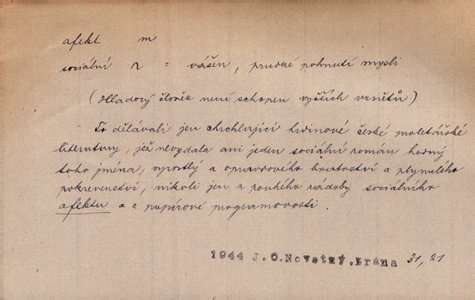 afekt m
sociální 2 = vášeň, prudké pohnutí mysli
(Hladový člověk není schopen vyšších vznětů)
To dělávali jen chrchlající hrdinové české proletářské
literatury, jež nevydala ani jeden sociální román hodný
toho jména, vyrostlý z opravdového bratrství a plynulého
pokrevenství, nikoli jen z pouhého vášdoby sociálního
afektu a z papírové programovosti.
1944 J.O.Novotný, Brána 21, 21